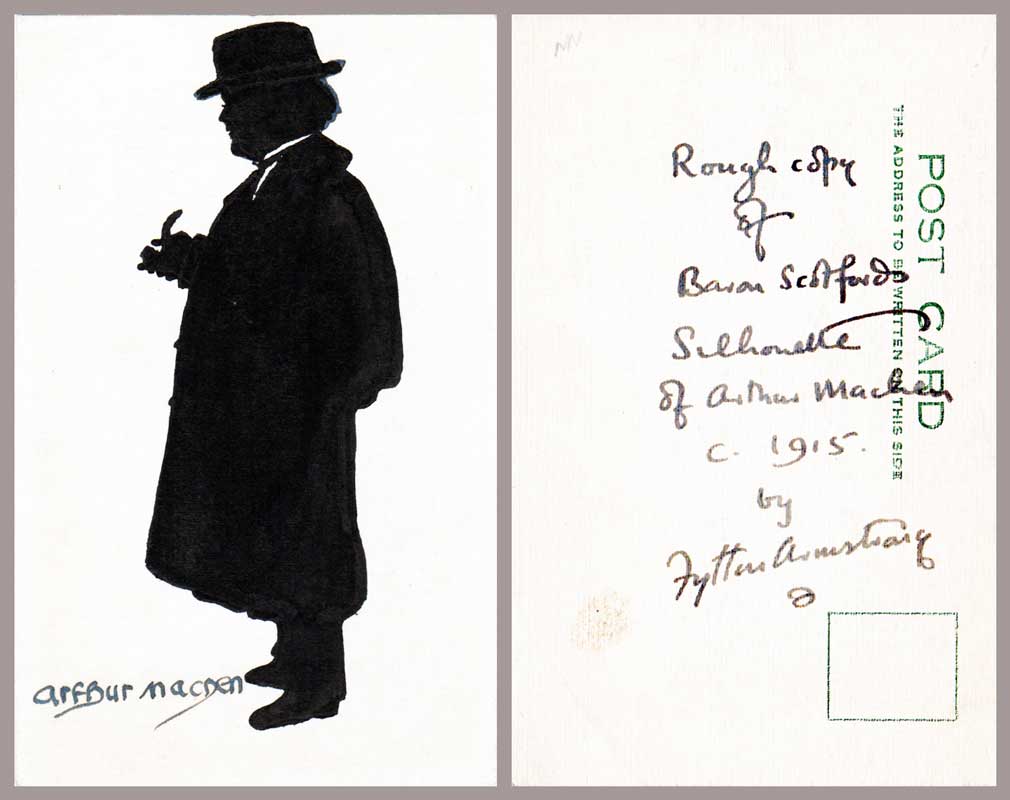 arthur machen
Rough copy
of
Baron Scotfords
Silhouette
of Arthur Machen
c. 1915.
by
Fytton Armstrong
POST CARD
THE ADDRESS TO BE WRITTEN ON THIS SIDE